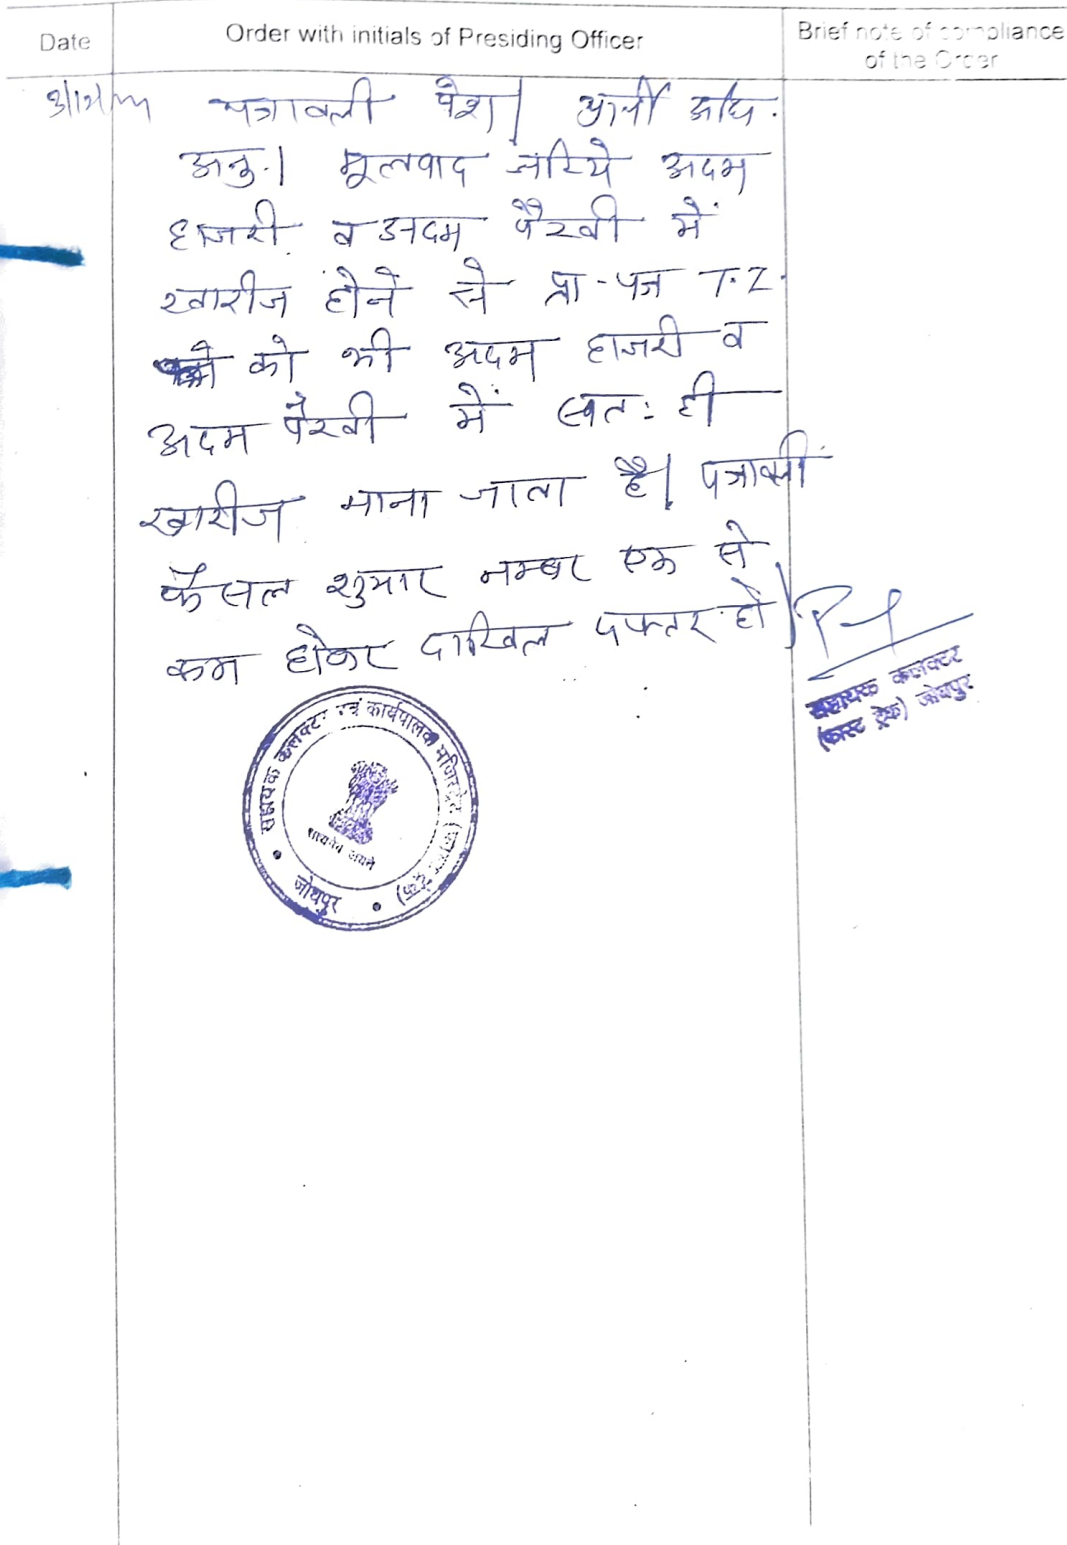 Date
Order with initials of Presiding Officer
Brief note of compliance
of the Order
पत्रावली पेश। प्रार्थी अधि.
अनु.। मूलवाद जरिये अदम
हाजरी व अदम पैरवी में
खारीज होने से प्रा-पत्र T.I.
को भी अदम हाजरी व
अदम पैरवी में स्वत: ही
खारीज माना जाता है। पत्रावली
फैसल शुमार नम्बर एक से
कम होकर दाखिल दफ्तर हो।
सहायक कलक्टर
(फास्ट ट्रेक) जोधपुर
सहायक कलक्टर एवं कार्यपालक मजिस्ट्रेट (फास्ट ट्रेक)
सत्यमेव जयते
जोधपुर